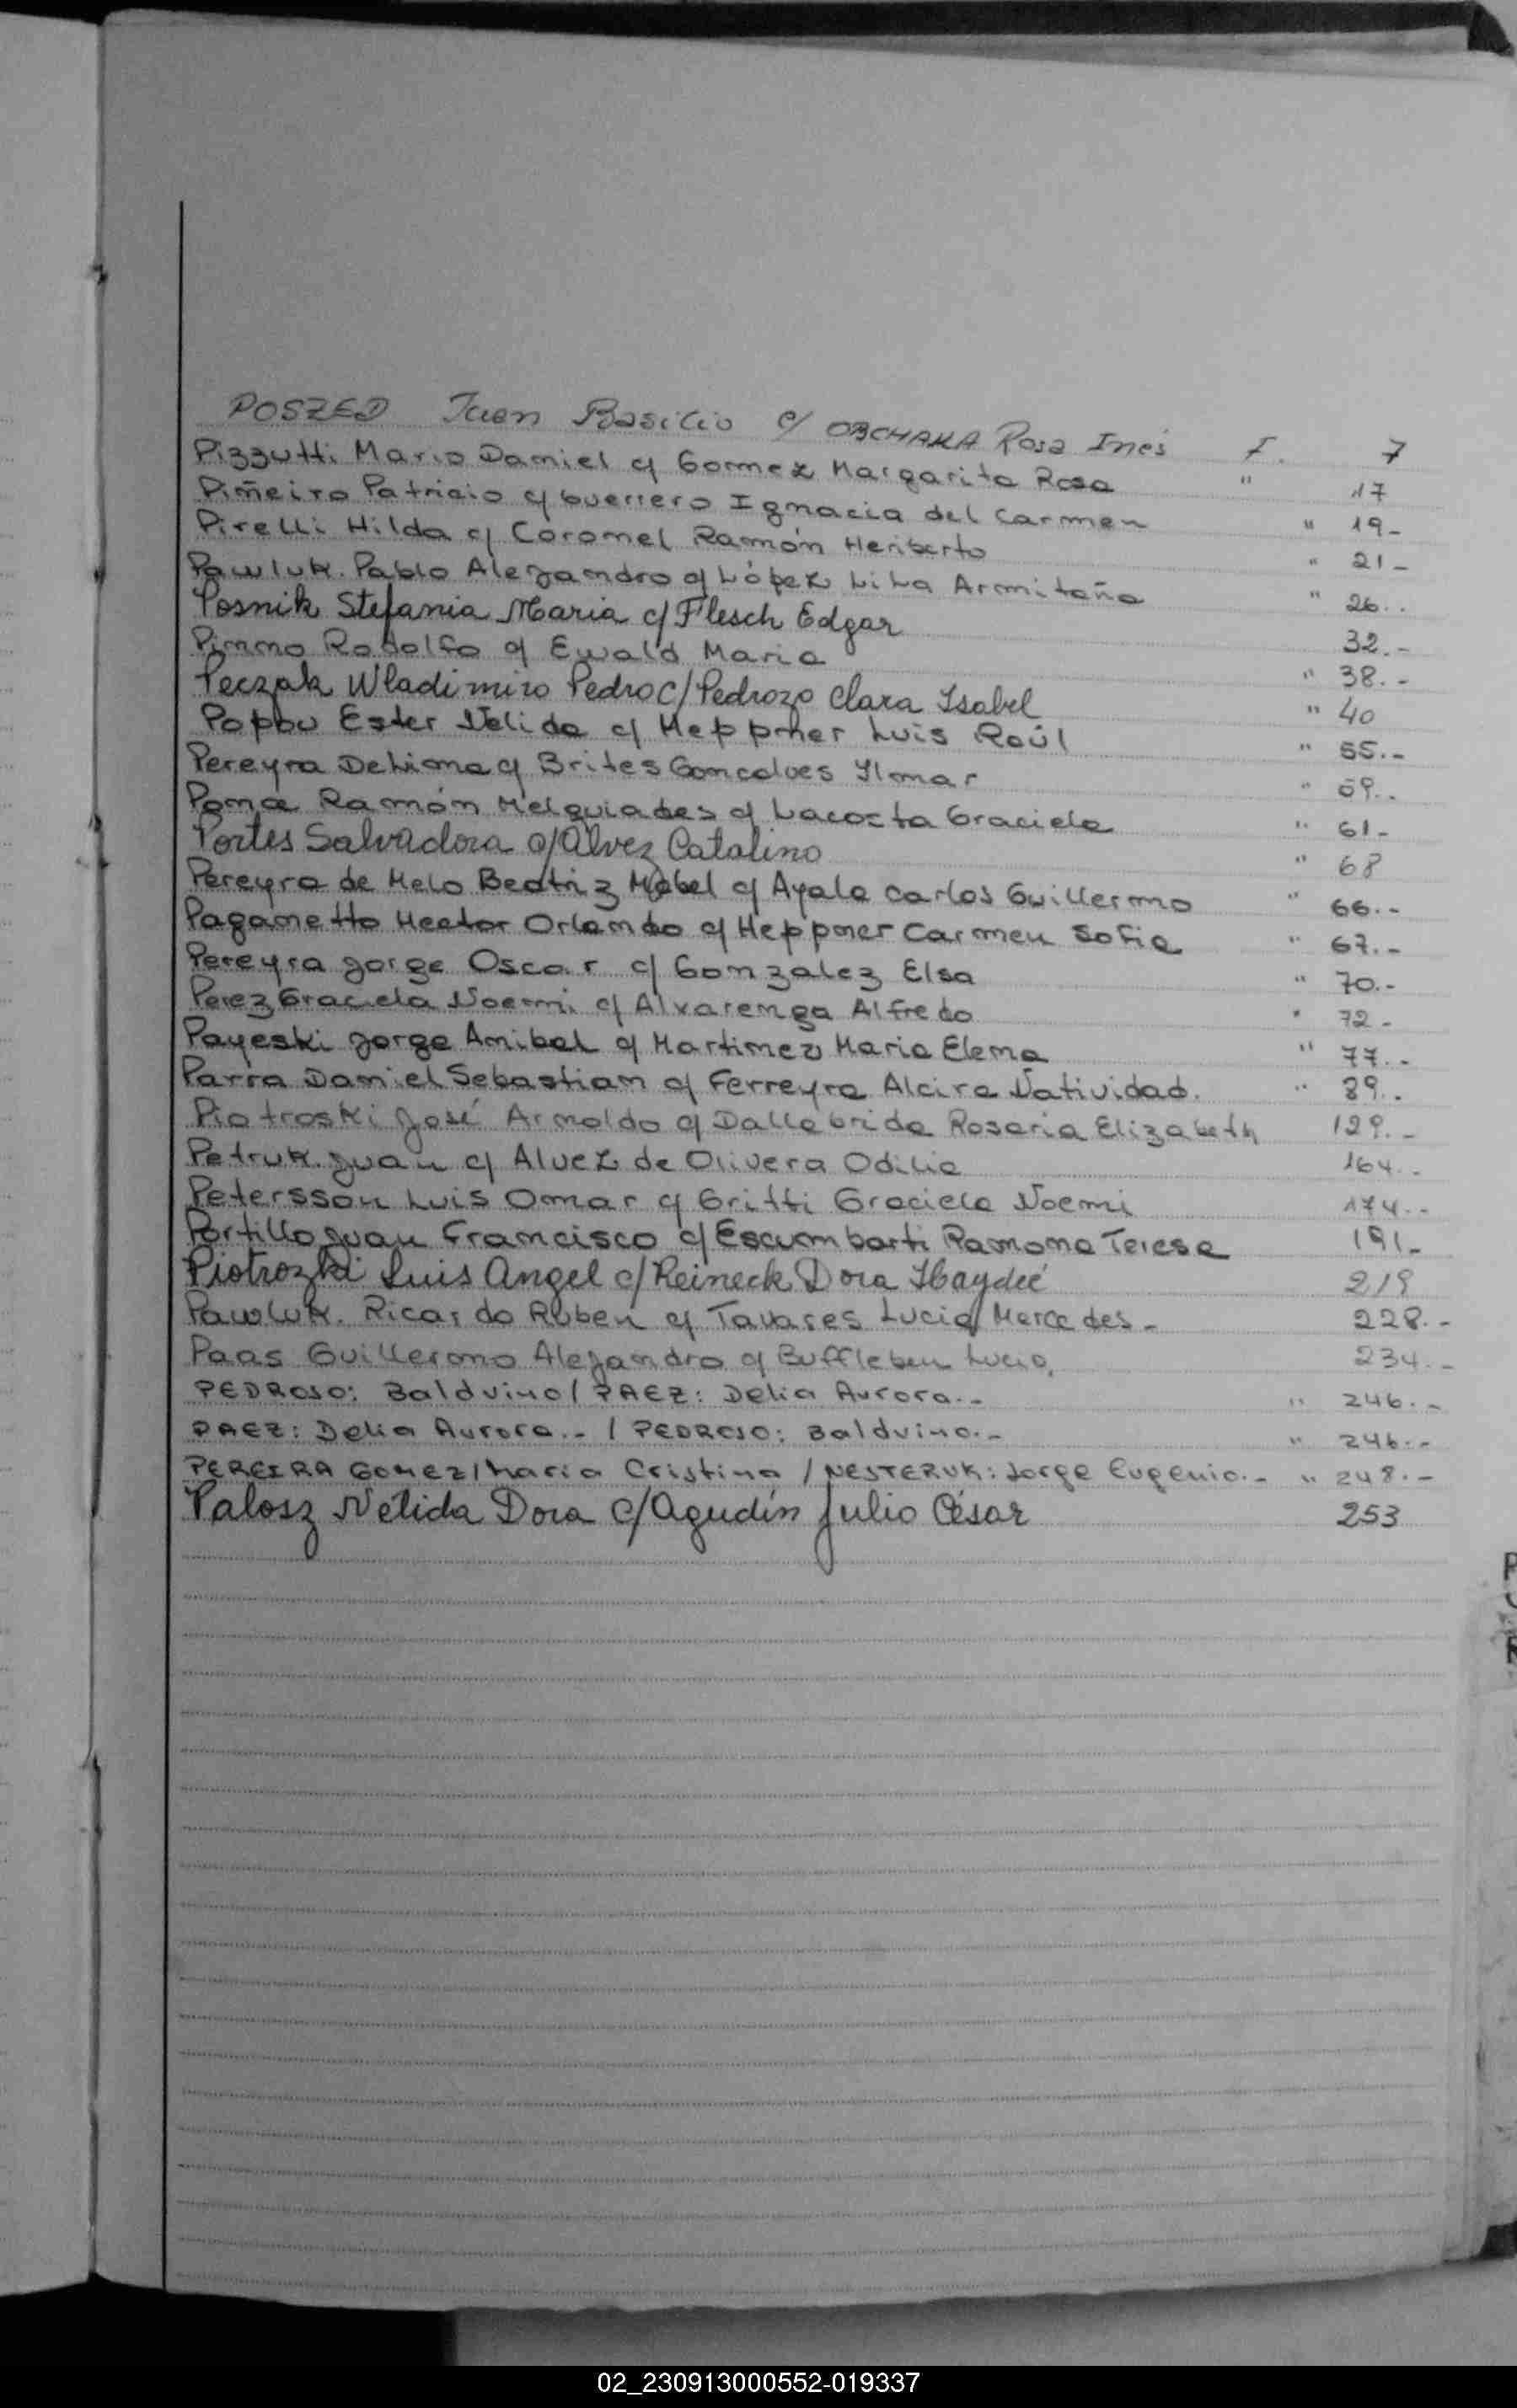 POSZED Juan Basilio c/ OBCHAKA Rosa Inés F. 7
Pizzutti Mario Daniel c/ Gomez Margarita Rosa " 17
Piñeiro Patricio c/ Guerrero Ignacia del Carmen " 19-
Pirelli Hilda c/ Coronel Ramón Heriberto " 21-
Pawluk. Pablo Alejandro c/ López Lila Armitaña " 26..
Posnik Stefania Maria c/ Flesch Edgar 32.-
Pimmo Rodolfo c/ Ewald Maria " 38.-
Peczak Wladimiro Pedro c/ Pedrozo Clara Isabel " 40
Popbu Ester Nelida c/ Heppner Luis Raúl " 55.-
Pereyra Deliana c/ Brites Goncalves Ilmar " 59..
Poma Ramón Melguiades c/ Lacosta Graciela " 61-
Portes Salvadora c/ Alvez Catalino " 68
Pereyra de Melo Beatriz Mabel c/ Ayala Carlos Guillermo " 66.-
Paganetto Hector Orlando c/ Heppner Carmen Sofia " 67.-
Pereyra Jorge Oscar c/ Gonzalez Elsa " 70.-
Perez Graciela Noemi c/ Alvarenga Alfredo " 72-
Payeski Jorge Anibal c/ Martinez Maria Elena " 77.-
Parra Daniel Sebastian c/ Ferreyra Alcira Natividad. " 89..
Piotroski José Arnoldo c/ Dallabrida Rosaria Elizabeth 129.-
Petruk. Juan c/ Alvez de Olivera Odilia 164..
Petersson Luis Omar c/ Gritti Graciela Noemi 174.-
Portillo Juan Francisco c/ Escumbarti Ramona Teresa 191-
Piotrozki Luis Angel c/ Reineck Dora Haydeé 219
Pawluk. Ricardo Ruben c/ Tavares Lucia Mercedes- 228.-
Paas Guillermo Alejandro c/ Buffleben Lucia. 234.-
PEDROSO: Baldvino / PAEZ: Delia Aurora.- " 246.-
PAEZ: Delia Aurora.- / PEDROSO: Baldvino.- " 246.-
PEREIRA GOMEZ / Maria Cristina / NESTERUK: Jorge Eugenio.- " 248.-
Palosz Nélida Dora c/ Agudín Julio César 253
02_230913000552-019337